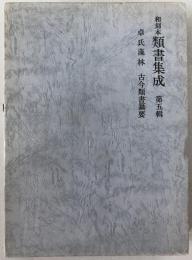 和刻本 類書集成 第五輯
卓氏藻林 古今類書纂要